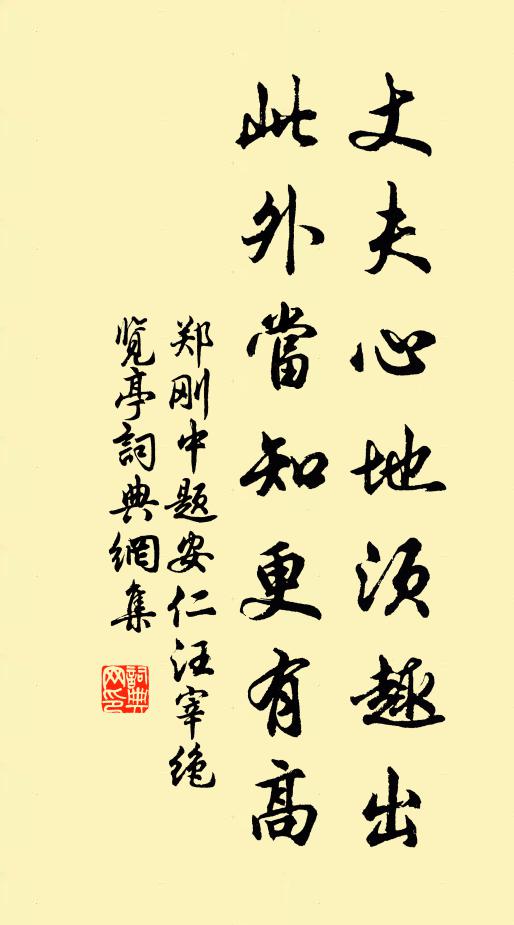 丈夫心地須趣出
此外當知更有高
郑刚中题安仁汪宰绝
览亭詞典網集
詞典
网印